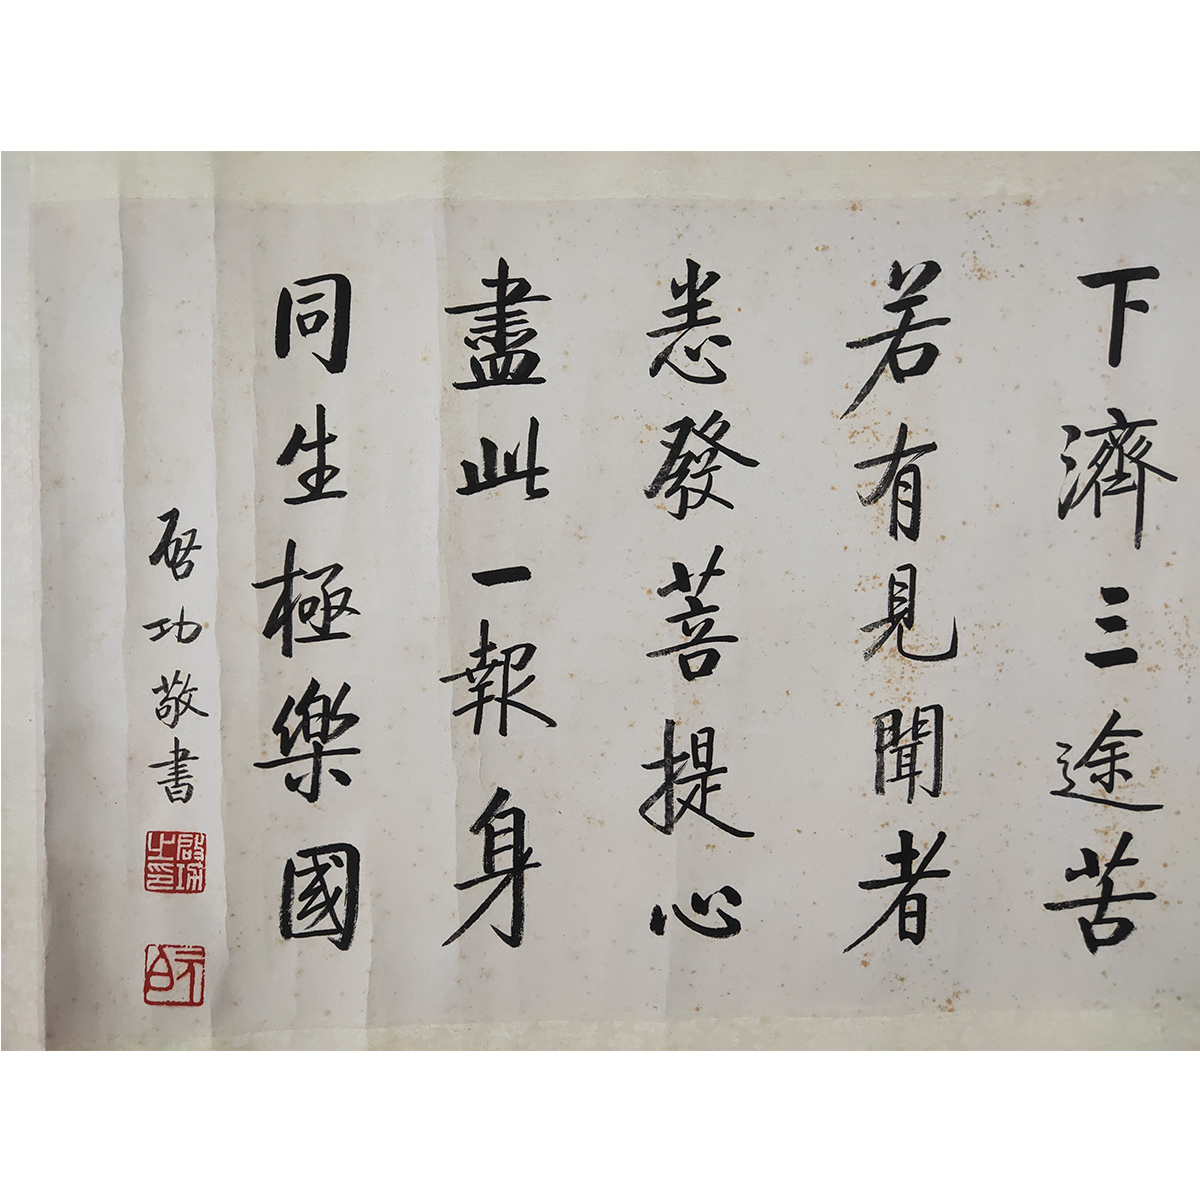 下濟三途苦
若有見聞者
悉發菩提心
盡此一報身
同生極樂國
啓功敬書
啟功之印
元白